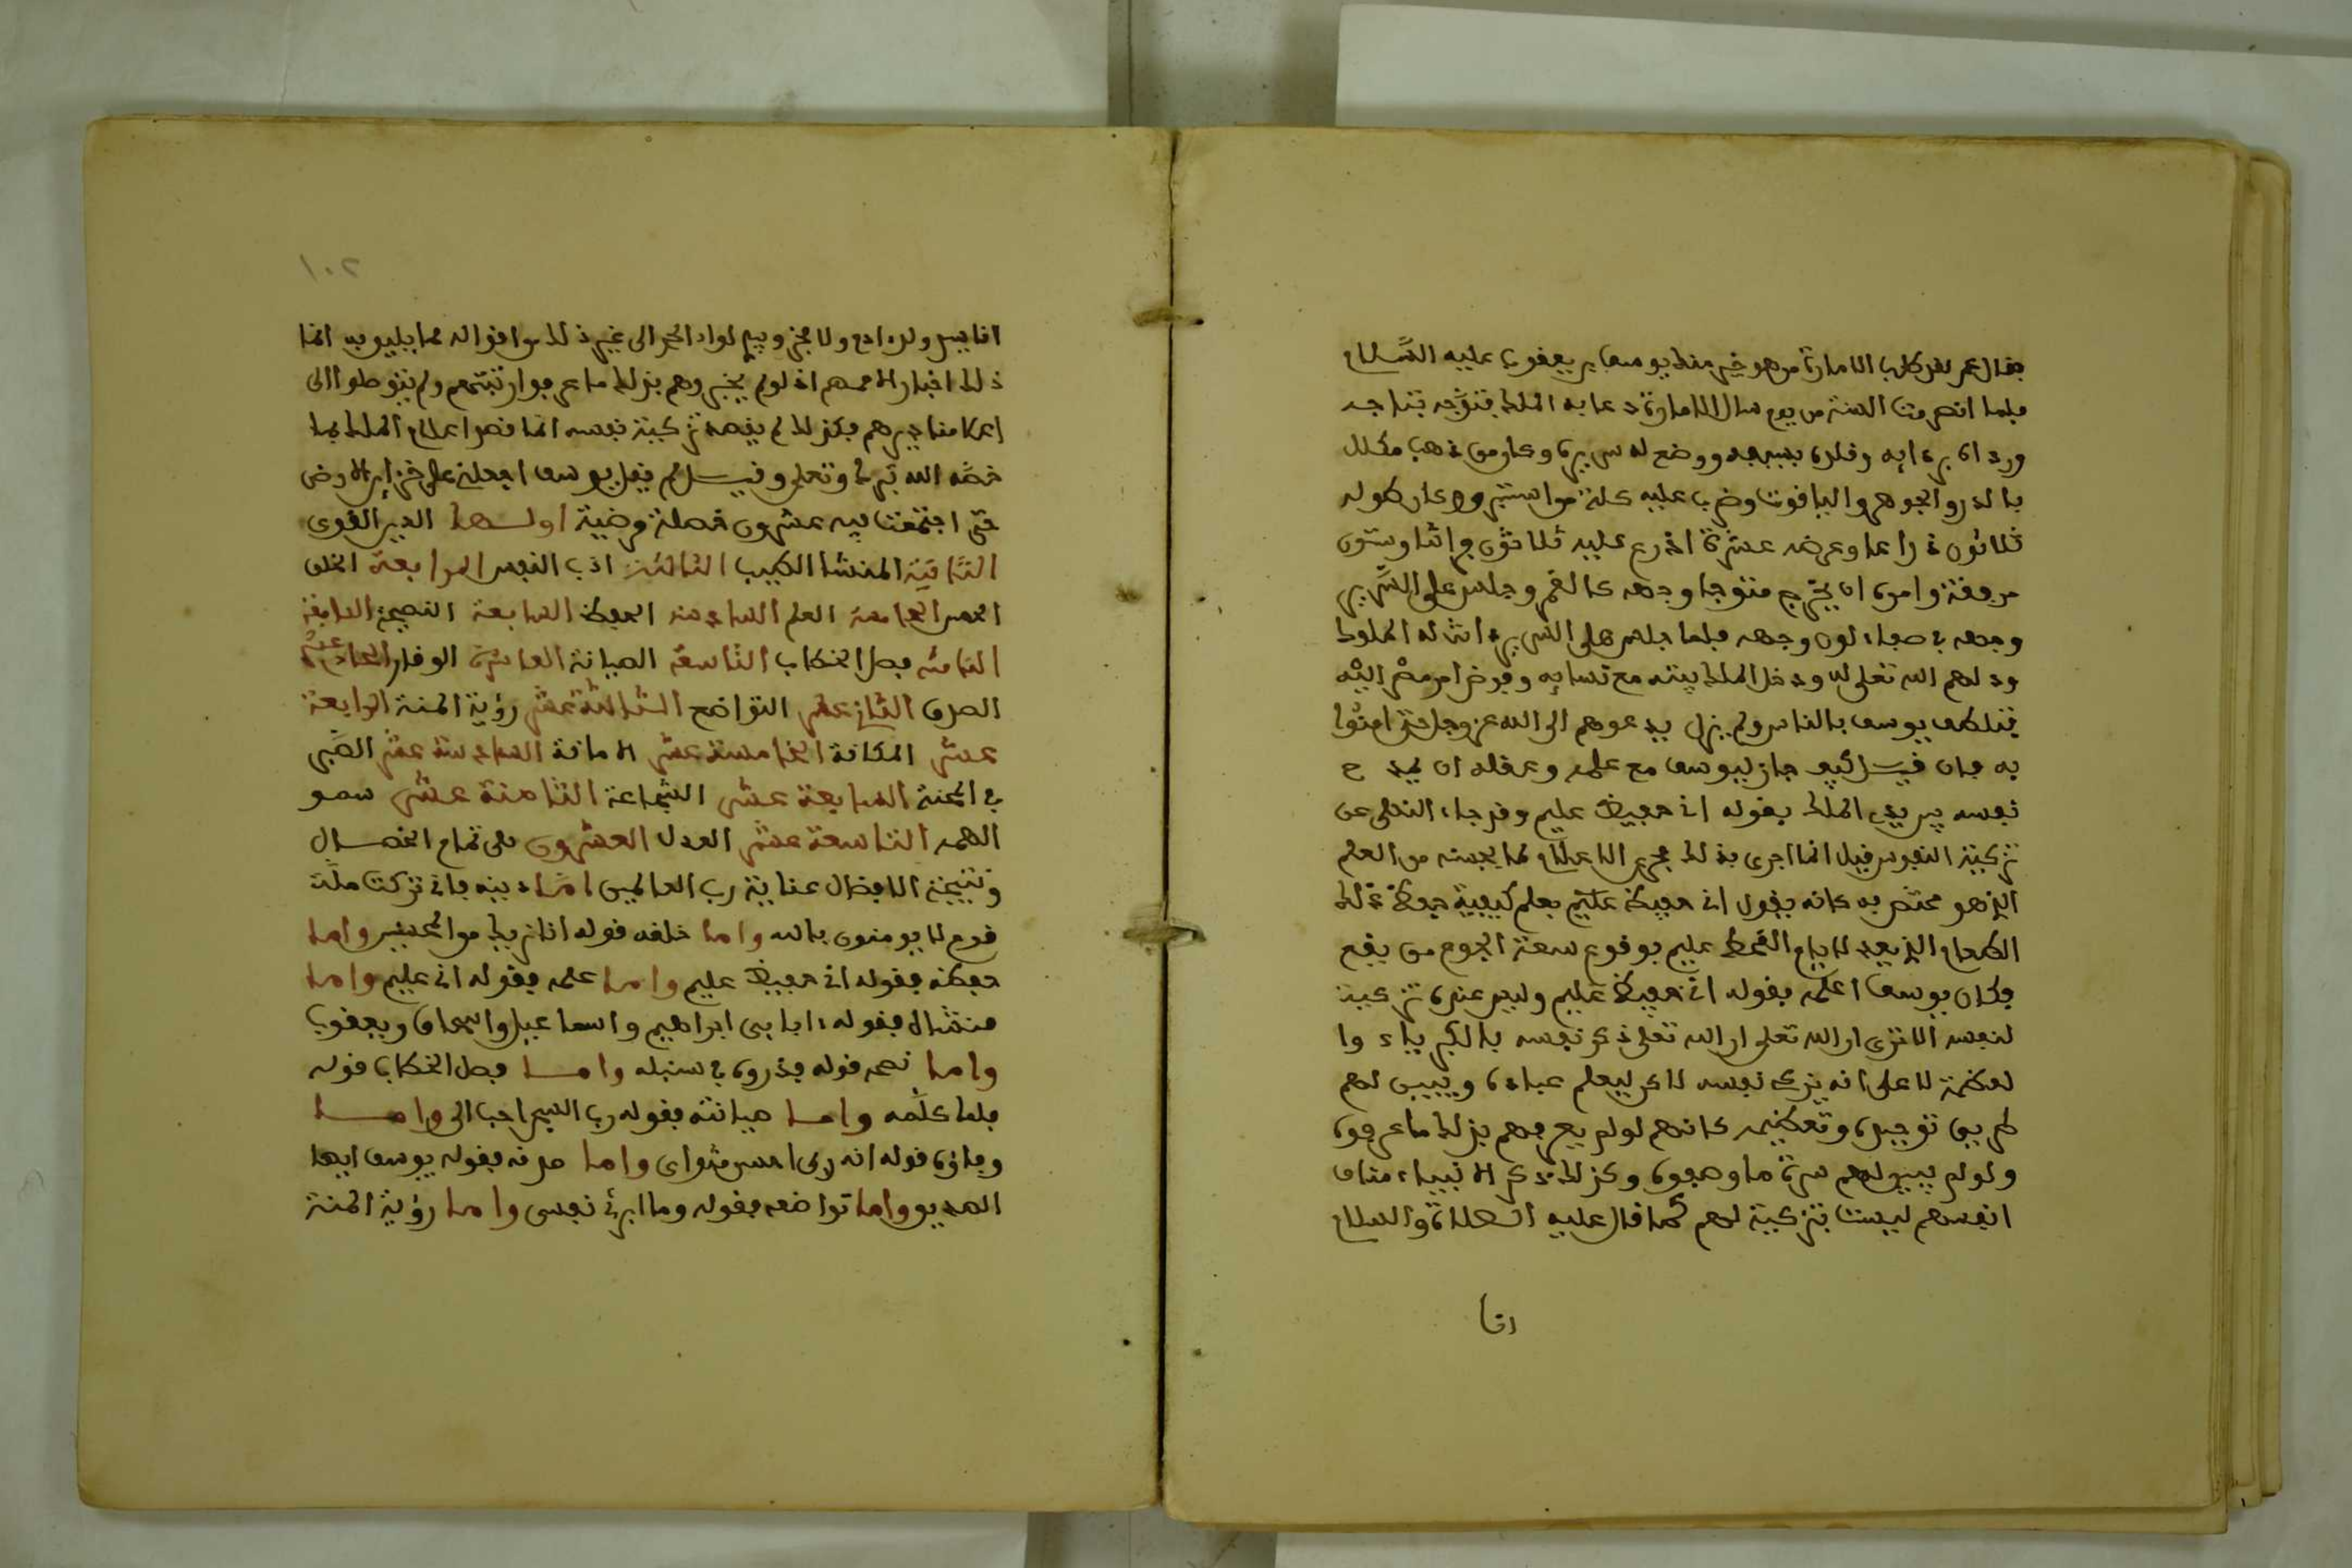 فقال عمر لقد طلب الامارة من هو خير منك يوسف بن يعقوب عليه السَّلام
فلما انصرمت السنة من يوم سال الامارة دعا به الملك فتوَّجه بتاجه
ورداه بردايه وقلده بسيفه ووضع له سريرا وكان من ذهب مكلل
بالدر والجوهر والياقوت وضرب عليه كلة من استبرق وكان طوله
ثلاثون ذراعا وعرضه عشرة اذرع عليه ثلاثون فراشا وستون
مرفقة وامره ان يخرج متوجا وجهه كالقمر وجلس على السَّرير
وجهه في صفاء لون وجهه فلما جلس على السرير اتت له الملوك
ودلهم الله تعلى له ودخل الملك بيته مع نسايه وفوض امر مصر اليْه
فتلطف يوسف بالناس ولم يزل يدعوهم الى الله عز وجل حتى امنوا
به فان قيل كيف جاز ليوسف مع علمه وعقله ان يمدح
نفسه بين يدي الملك بقوله اني حفيظ عليم وقد جاء النهى عن
تزكية النفوس قيل انما اجرى بذلك مجرى الاعلام لما يحسنه من العلم
الذي هو مختص به كانه يقول اني حفيظ عليم بعلم كيفية حفظ ذلك
الطعام الذي يعد لايام القحط عليم بوقوع سعة الجوع متى يقع
فكان يوسف اعلمه بقوله اني حفيظ عليم وليس عنده تزكية
لنفسه الا ترى ان الله تعلى ان الله تعلى ذكر نفسه بالكبرياء وا
لعظمة لا على انه يزكى نفسه لاكن ليعلم عباده ويبين لهم
طريق توحيده وتعظيمه كانهم لو لم يعرفهم بذلك ما عرفوه
ولو لم يبين لهم سرة ما وصفوه وكذلك ذكر الانبياء مناقب
انفسهم ليست بتزكية لهم كما قال عليه الصلاة والسلام
انا
١٠٢
انا سيد ولد ادم ولا فخر وبيدي لواء الحمد الى غير ذلك من اقواله مما يليق به انما
ذلك اخبار لامتهم اذ لو لم يخبروهم بذلك ما عرفوا رتبتهم ولم يتوصلوا الى
اعظام قدرهم فكذلك لم يقصد تزكية نفسه انما قصد اعلام الملك بما
خصَّه الله تبرك وتعلى وقيل لم يقل يوسف اجعلنى على خزاين الارض
حتى اجتمعت فيه عشرون خصلة مرضية اولها الدين القوى
الثانية المنشا الطيب الثالثة ادب النفس الرابعة الخلق
الحسن الخامسة العلم السادسة الحفظ السابعة النصيحة النافعة
الثامنة فصل الخطاب التاسعة الصيانة العاشرة الوفاء الحادي عشر
الصدق الثاني عشر التواضع الثالثة عشر رؤية المنة الرابعة
عشر المكانة الخامسة عشر الامانة السادسة عشر الصَّبر
في المحنة السابعة عشر الشجاعة الثامنة عشر سمو
الهمة التاسعة عشر العدل العشرون هي تمام الخصال
ونتيجة الافضال عناية رب العالمين امَّا دينه فانى تركت ملَّة
قوم لا يومنون بالله واما خلقه قوله انا نريك من المحسنين واما
حفظه فقوله اني حفيظ عليم واما علمه فقوله اني عليم واما
منشاه فقوله ءابايى ابراهيم واسماعيل واسحاق ويعقوب
واما نصحه قوله فذروه في سنبله واما فصل الخطاب قوله
فلما كلَّمه واما صيانته فقوله رب السجن احب الى واما
وفاؤه قوله انه ربى احسن مثواى واما صدقه فقوله يوسف ايها
الصديق واما تواضعه فقوله وما ابرئ نفسى واما رؤية المنة